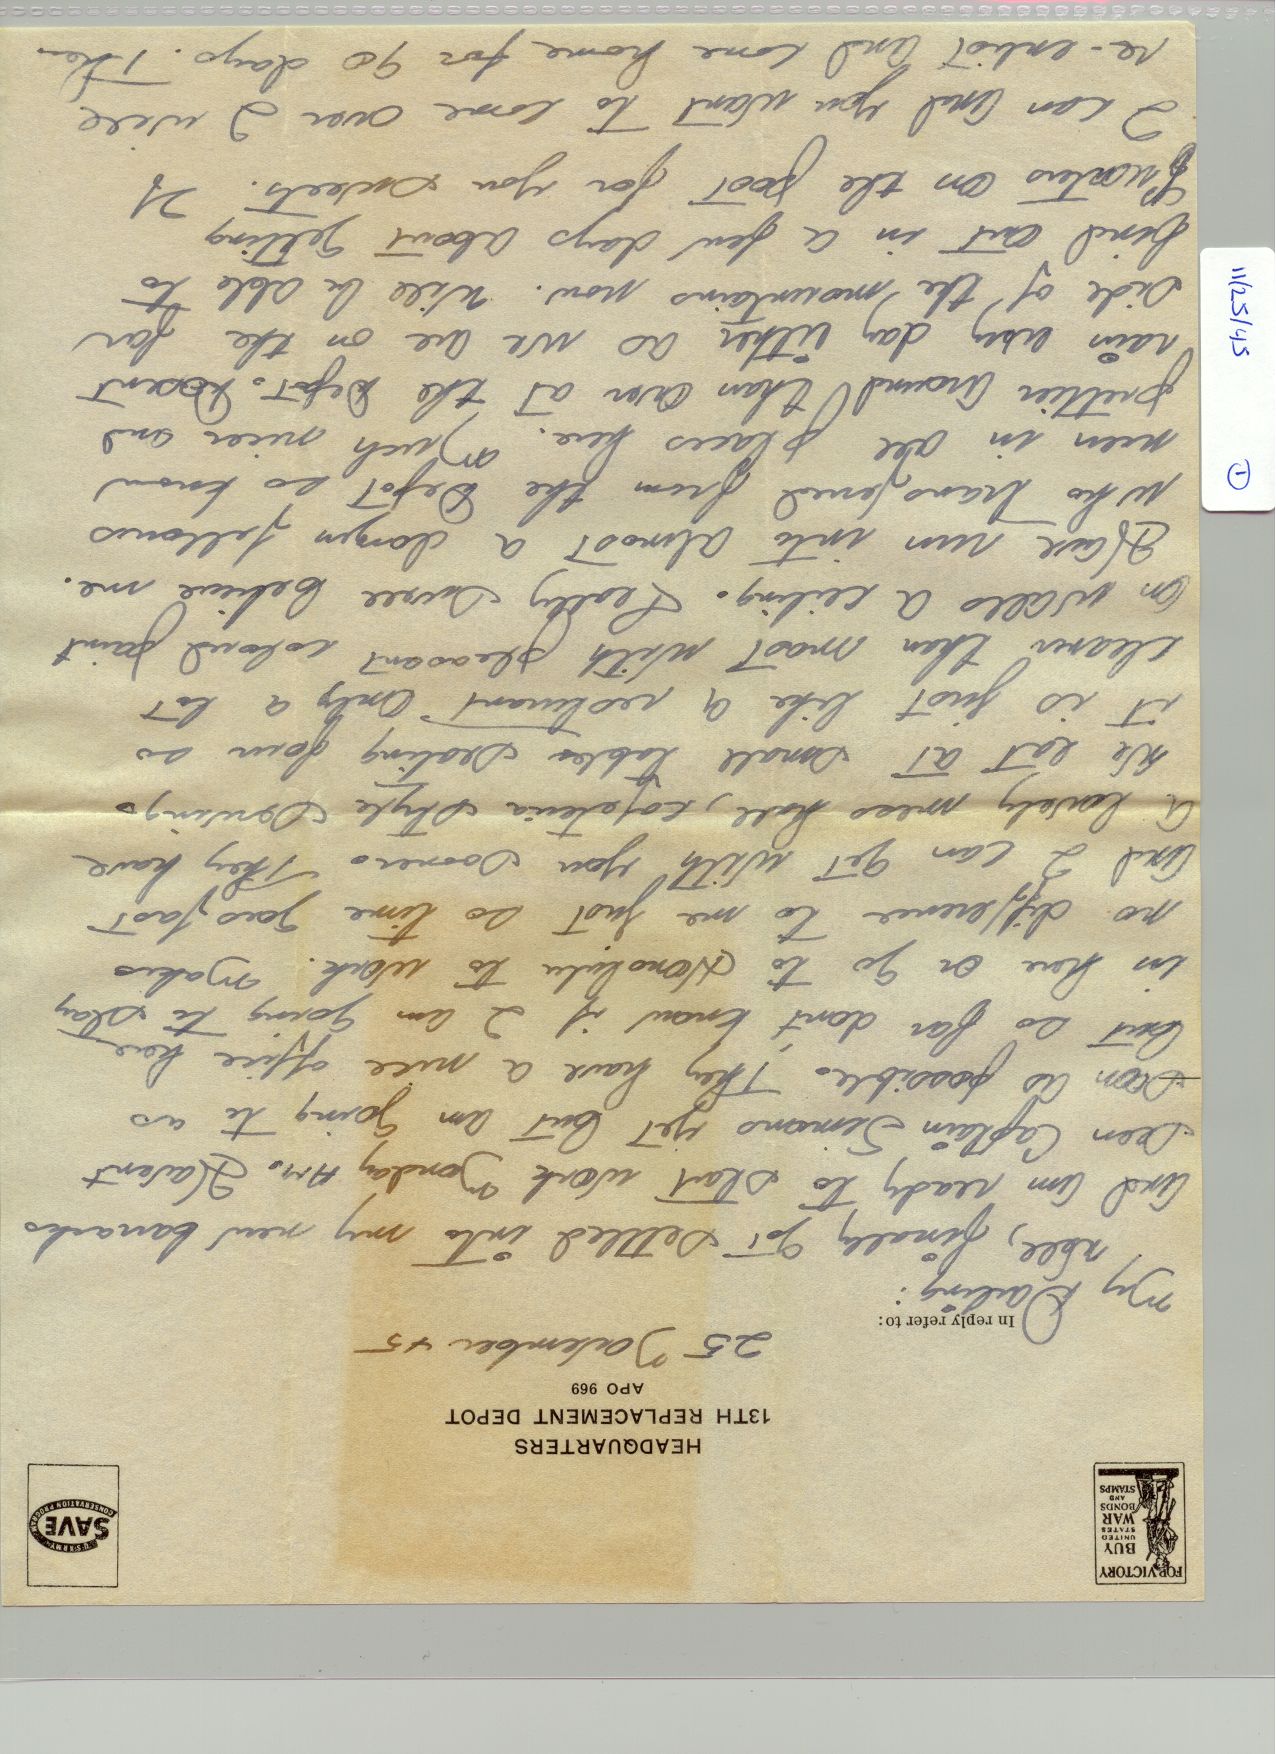 FOR VICTORY
BUY
UNITED
STATES
WAR
BONDS
AND
STAMPS
U·S·ARMY
SAVE
CONSERVATION PROGRAM
HEADQUARTERS
13TH REPLACEMENT DEPOT
APO 969
25 November 45
In reply refer to:
My Darling:
Well, finally got settled into my new barracks
and am ready to start work Monday AM. Havent
seen Captain Simons yet but am going to as
soon as possible. They have a nice office here,
but so far don't know if I am going to stay
in here or go to Honolulu to work. Makes
no difference to me just so time goes fast
and I can get with you sooner. They have
a lovely mess hall, cafeteria style serving.
We eat at small tables seating four as
it is just like a resturant only a lot
cleaner than most with pleasant colored paint
on walls & ceiling. Really swell believe me.
Have run into almost a dozen fellows
who transfered from the Depot so know
men in all places here. Much nicer and
prettier around than over at the Depot. Dosent
rain every day either as we are on the far
side of the mountains now. Will be able to
find out in a few days about getting
quarters on the post for you sweets. If
I can and you want to come over I will
re-enlist and come home for 90 days. The
11/25/45
1